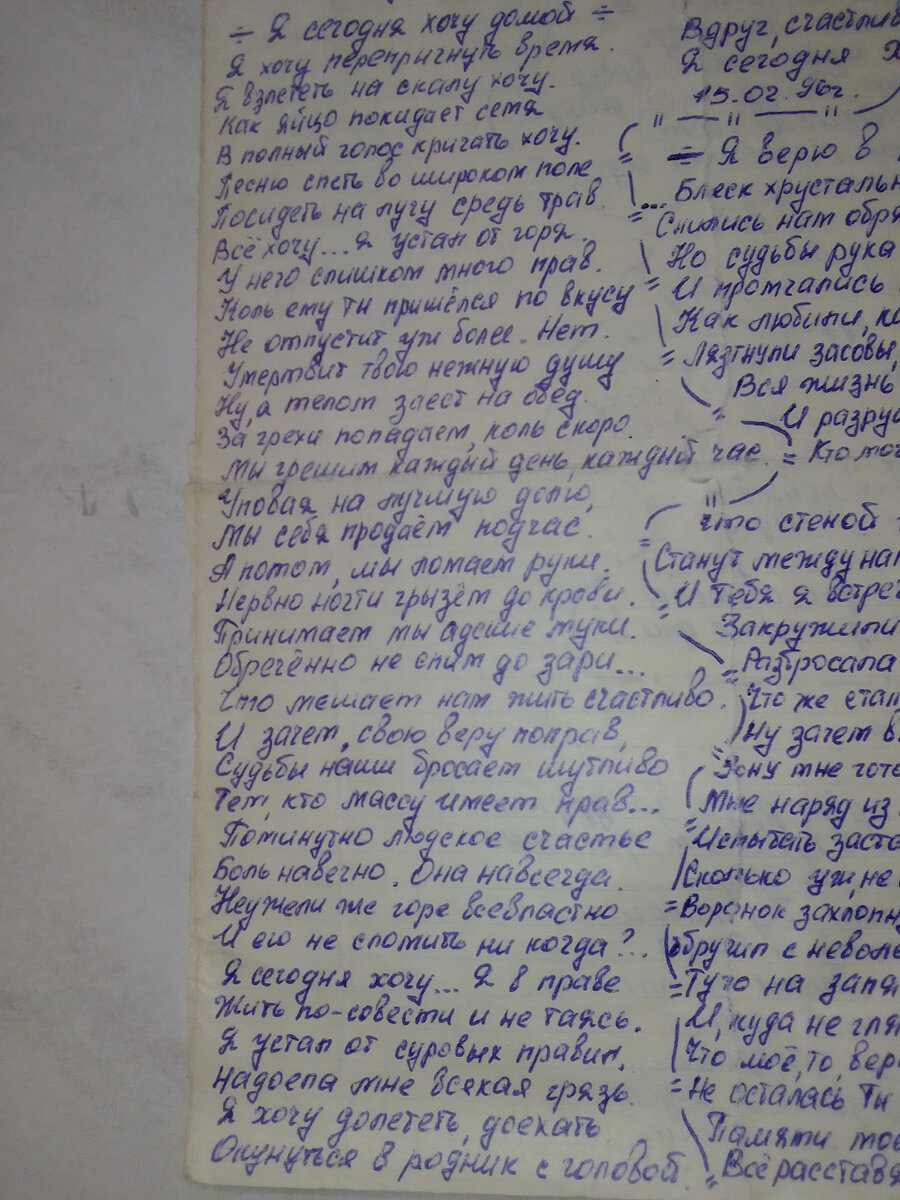 ÷ Я сегодня хочу домой ÷
Я хочу перепрыгнуть время.
Я взлететь на скалу хочу.
Как яйцо покидает семя
В полный голос кричать хочу.
Песню спеть во широком поле
Посидеть на лугу средь трав.
Всё хочу... Я устал от горя.
У него слишком много прав.
Коль ему ты пришёлся по вкусу
Не отпустит уж более. Нет.
Умертвит твою нежную душу
Ну, а телом заест на обед.
За грехи попадаем, коль скоро.
Мы грешим каждый день, каждый час.
Уповая на лучшую долю,
Мы себя продаём подчас.
А потом, мы ломаем руки.
Нервно ногти грызём до крови.
Принимаем мы адские муки.
Обречённо не спим до зари...
Что мешает нам жить счастливо.
И зачем, свою веру поправ,
Судьбы наши бросаем шутливо
Тем, кто массу имеет прав...
Поминутно людское счастье
Боль навечно. Она навсегда.
Неужели же горе всевластно
И его не сломить ни когда?..
Я сегодня хочу... Я в праве
Жить по-совести и не таясь.
Я устал от суровых правил,
Надоела мне всякая грязь.
Я хочу долететь, доехать
Окунуться в родник с головой.
Вдруг, счастлив
Я сегодня х
15.02.96г.
" — " — "
÷ Я верю в
... Блеск хрустальн
Снились нам обря
Но судьбы рука
И промчались
Как любили, кл
Лязгнули засовы,
Вся жизнь
И разру
Кто мо
Что стеной
Станут между нам
И Тебя я встре
Закружили
Разбросала
Что же ста
Ну зачем в
Зону мне гото
Мне наряд из
Испытать заста
Сколько уж, не
Воронок захлопну
обручил с неволе
Туго на запя
И, куда не гля
Что моё, то, вер
Не осталась Ты
Памяти мо
Всё расстав